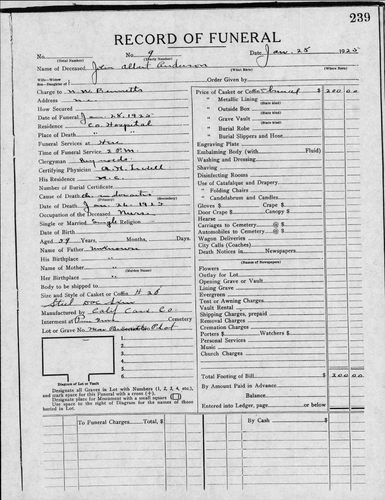 239
RECORD OF FUNERAL
No. No. 9 Date Jan. 28 1925
(Total Number) (Yearly Number) (What Date) (Where Born)
Name of Deceased John Albert Anderson
Wife—Widow
Son—Daughter of Order Given by
Charge to
Address N.C.
How Secured
Date of Funeral Jan. 28, 1925
Residence Co. Hospital
Place of Death
Funeral Services at Here
Time of Funeral Service 2 P.M.
Clergyman Reynolds
Certifying Physician
His Residence N.C.
Number of Burial Certificate
Cause of Death
(Primary) (Secondary)
Date of Death Jan. 26, 1925
Occupation of the Deceased
Single or Married Single Religion
Date of Birth
Aged 39 Years, Months, Days.
Name of Father Unknown
His Birthplace
Name of Mother
(Maiden Name)
Her Birthplace
Body to be shipped to
Size and Style of Casket or Coffin
Manufactured by Calif Cas. Co.
Interment at Cemetery
Lot or Grave No.
1
2
3
4
5
6
7
8
Diagram of Lot or Vault
Designate all Graves in Lot with Numbers (1, 2, 3, 4, etc.),
and mark space for this Funeral with a cross (+).
Designate place for Monument with a small square
Use space to the right of Diagram for the names of those
buried in Lot.
Price of Casket or Coffin $ 200 00
" Metallic Lining
(State Kind)
" Outside Box
(State Kind)
" Grave Vault
(State Kind)
" Burial Robe
" Burial Slippers and Hose
Engraving Plate
Embalming Body (with Fluid)
Washing and Dressing
Shaving
Disinfecting Rooms
Use of Catafalque and Drapery
" Folding Chairs
" Candelabrum and Candles
Gloves $ Crape $
Door Crape $ Canopy $
Hearse
Carriages to Cemetery @ $
Automobiles to Cemetery @ $
Wagon Deliveries
City Calls (Coaches)
Death Notices in Newspapers
(Names of Newspapers)
Flowers
Outlay for Lot
Opening Grave or Vault
Lining Grave
Evergreen
Tent or Awning Charges
Vault Rental
Shipping Charges, prepaid
Removal Charges
Cremation Charges
Porters $ Watchers $
Personal Services
Music
Church Charges
Total Footing of Bill $ 200 00
By Amount Paid in Advance
Balance
Entered into Ledger, page or below
To Funeral Charges. Total, $ By Cash $